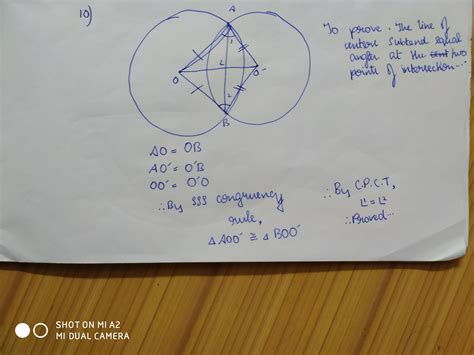 10)
A
1
L
O
O'
2
B
To prove. The line of
centers subtend equal
angles at the two
points of intersection...
AO = OB
AO' = O'B
OO' = O'O
∴ By SSS congruency
rule,
△ AOO' ≅ △ BOO'
∴ By C.P.C.T,
L1 = L2
∴ Proved...
SHOT ON MI A2
MI DUAL CAMERA